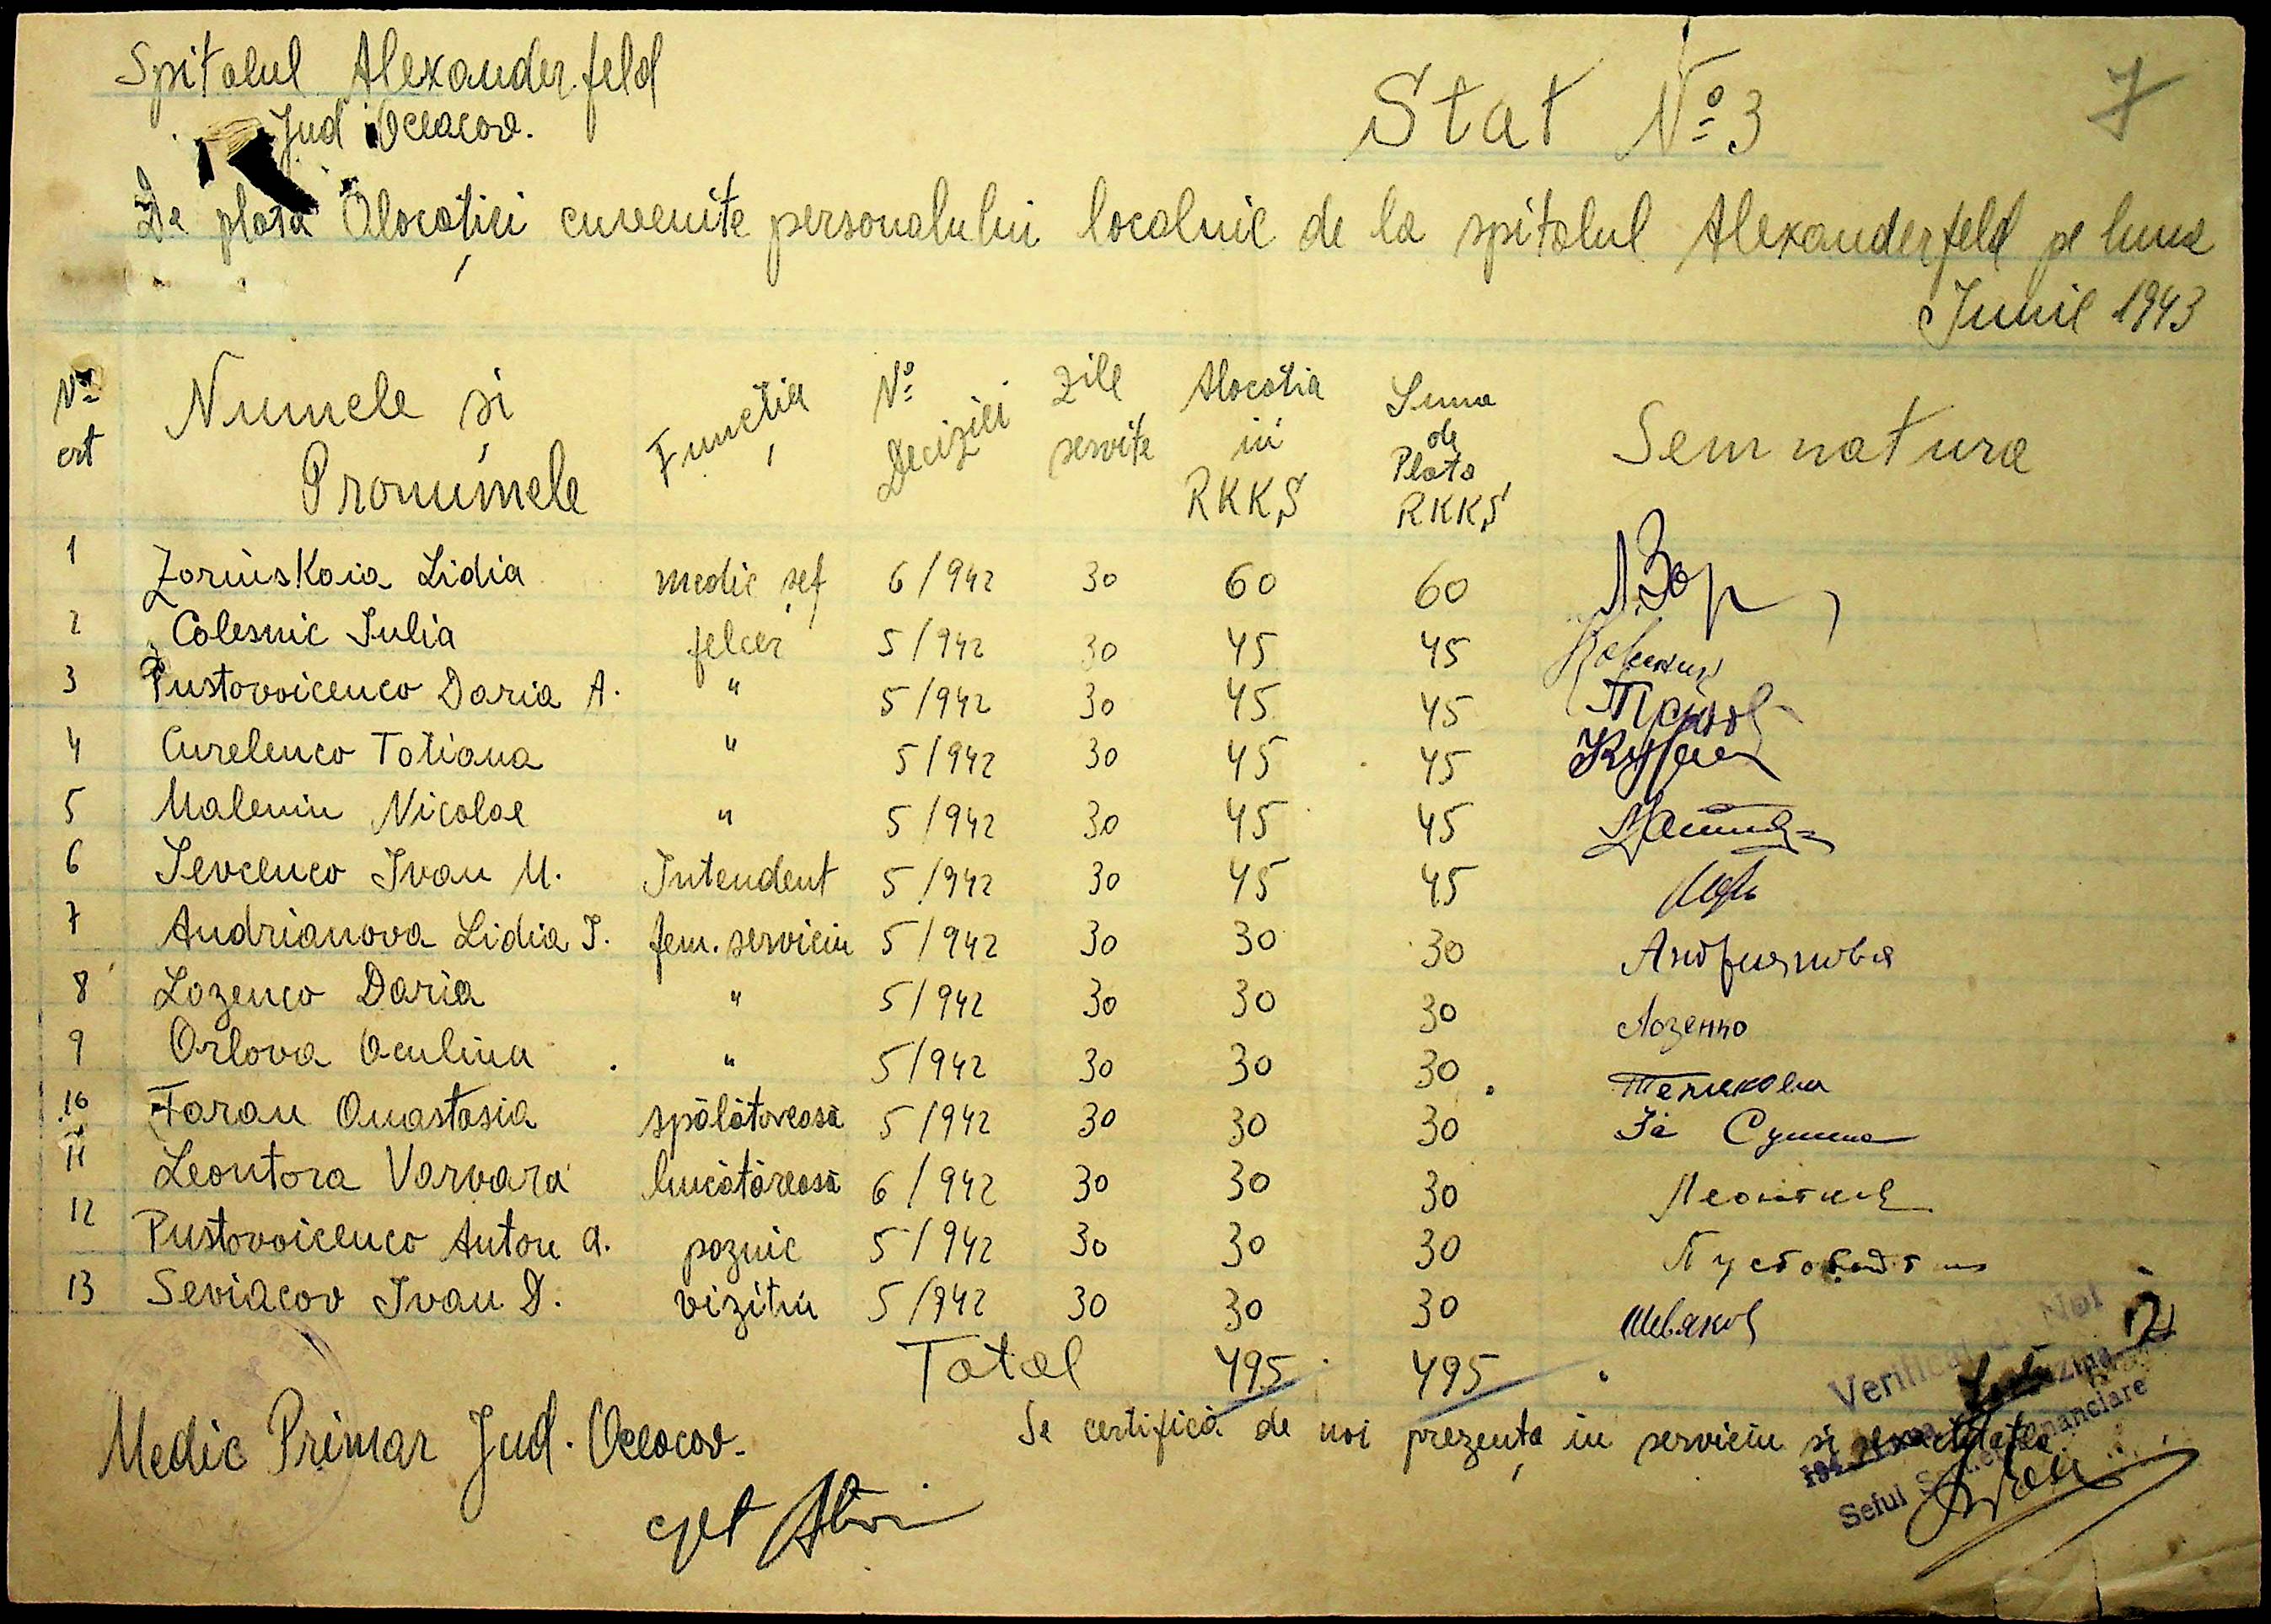 Spitalul Alexanderfeld
Jud Oceacov.
Stat № 3
7
De plata Alocației cuvenite personalului localnic de la spitalul Alexanderfeld pe luna
Junie 1943
№ crt Numele și Pronumele Funcția № Deciziei Zile servite Alocatia in RKKS Suma de Plata RKKS Semnatura
1 Zorinskaia Lidia medic șef 6/942 30 60 60 Л Зор
2 Colesnic Iulia felcer 5/942 30 45 45
3 Pustovoicenco Daria A. " 5/942 30 45 45
4 Curelenco Totiana " 5/942 30 45 45
5 Malenin Nicolae " 5/942 30 45 45
6 Sevcenco Ivan M. Intendent 5/942 30 45 45
7 Andrianova Lidia I. fem. serviciu 5/942 30 30 30 Андриянова
8 Lozenco Daria " 5/942 30 30 30 Лозенко
9 Orlova Oculina " 5/942 30 30 30
10 Taran Anastasia spălătoreasă 5/942 30 30 30 За
11 Leontora Varvara bucătăreasă 6/942 30 30 30
12 Pustovoicenco Anton A. paznic 5/942 30 30 30
13 Seviacov Ivan D. vizitiu 5/942 30 30 30 Шевяков
Total 495 495
Verificat de Noi
Se certifică de noi prezența in serviciu și exactitatea
Medic Primar Jud. Oceacov.
Seful